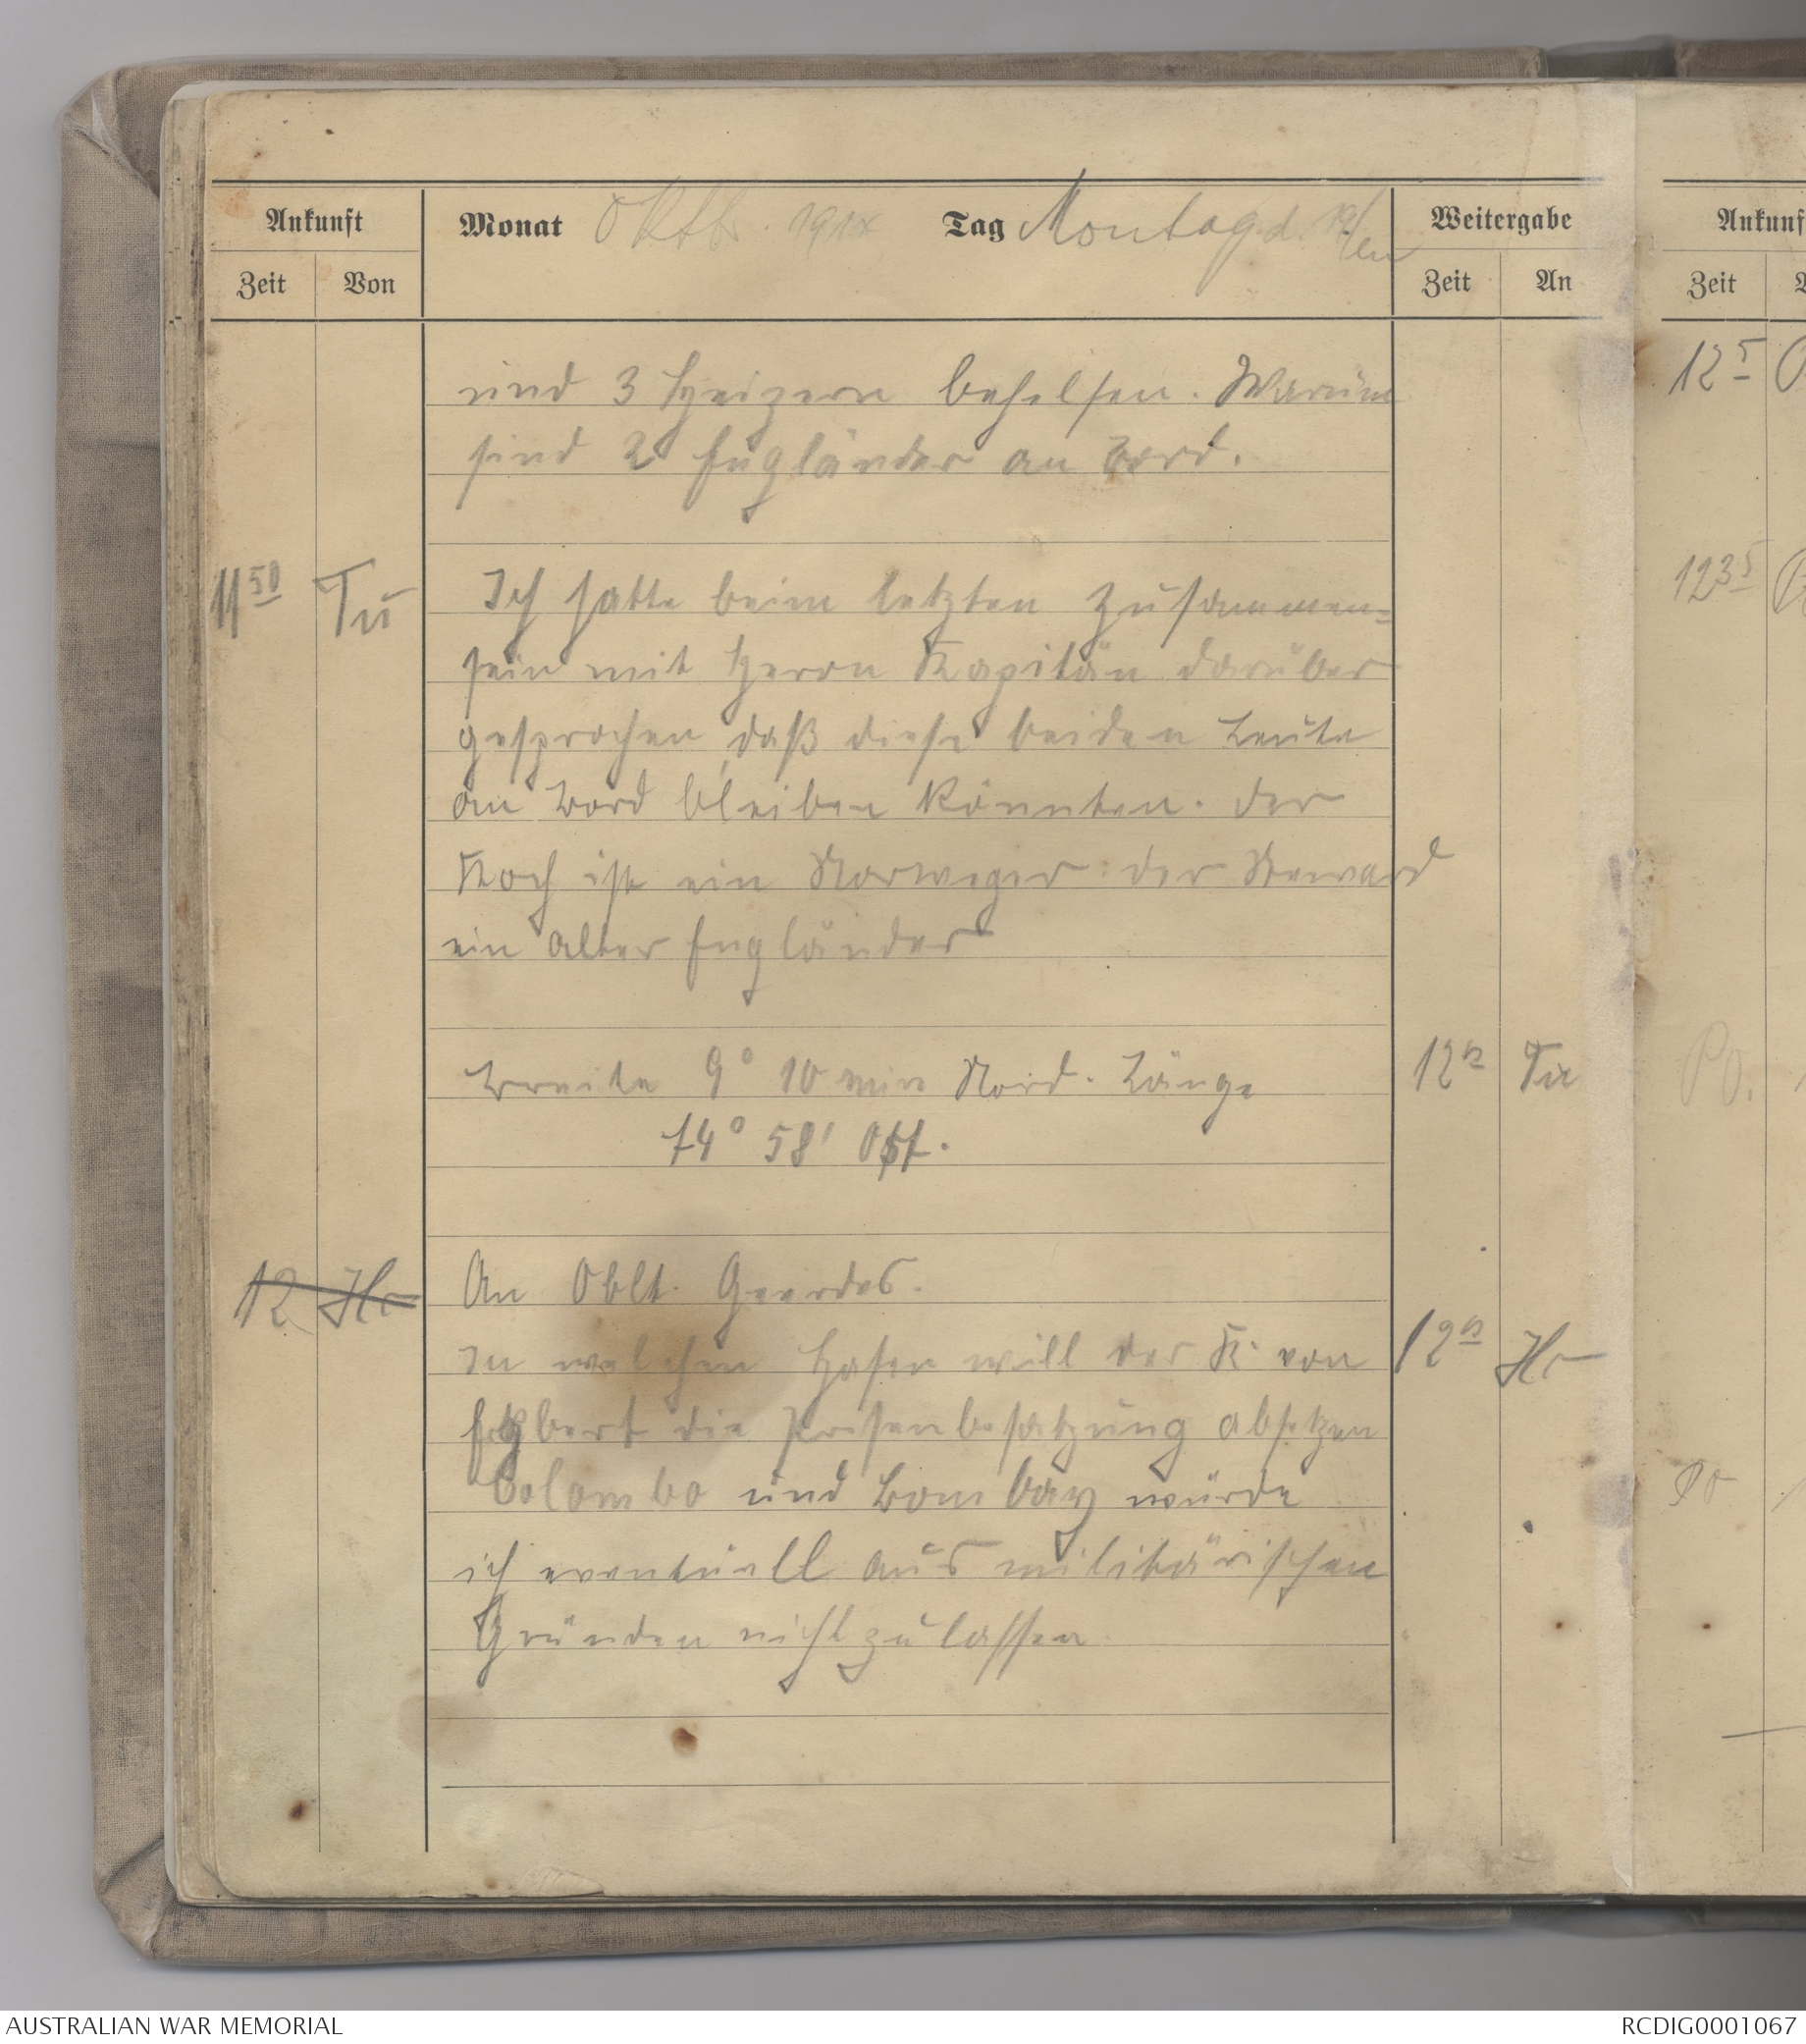 Ankunft Monat Oktb. 1914 Tag Montag d. 19/ten Weitergabe Ankunf
Zeit Von Zeit An Zeit
und 3 Heizern behelfen. Warum 12 5
sind 2 Engländer an Bord.
11 50 Tü Ich hatte beim letzten Zusammen= 12 35
sein mit Herrn Kapitän darüber
gesprochen, daß diese beiden Leute
an Bord bleiben könnten. Der
Koch ist ein Norweger: der Steward
ein alter Engländer
Breite 9° 10 min Nord. Länge 12 Tü PO.
74° 58' Ost.
12 Hr An Oblt. Geerdes.
In welchen Hafen will der K. von 12 Hr
Egbert die Prisenbesatzung absetzen
Colombo und Bombay würde PO
ich eventuell aus militärischen
Gründen nicht zulassen
AUSTRALIAN WAR MEMORIAL RCDIG0001067